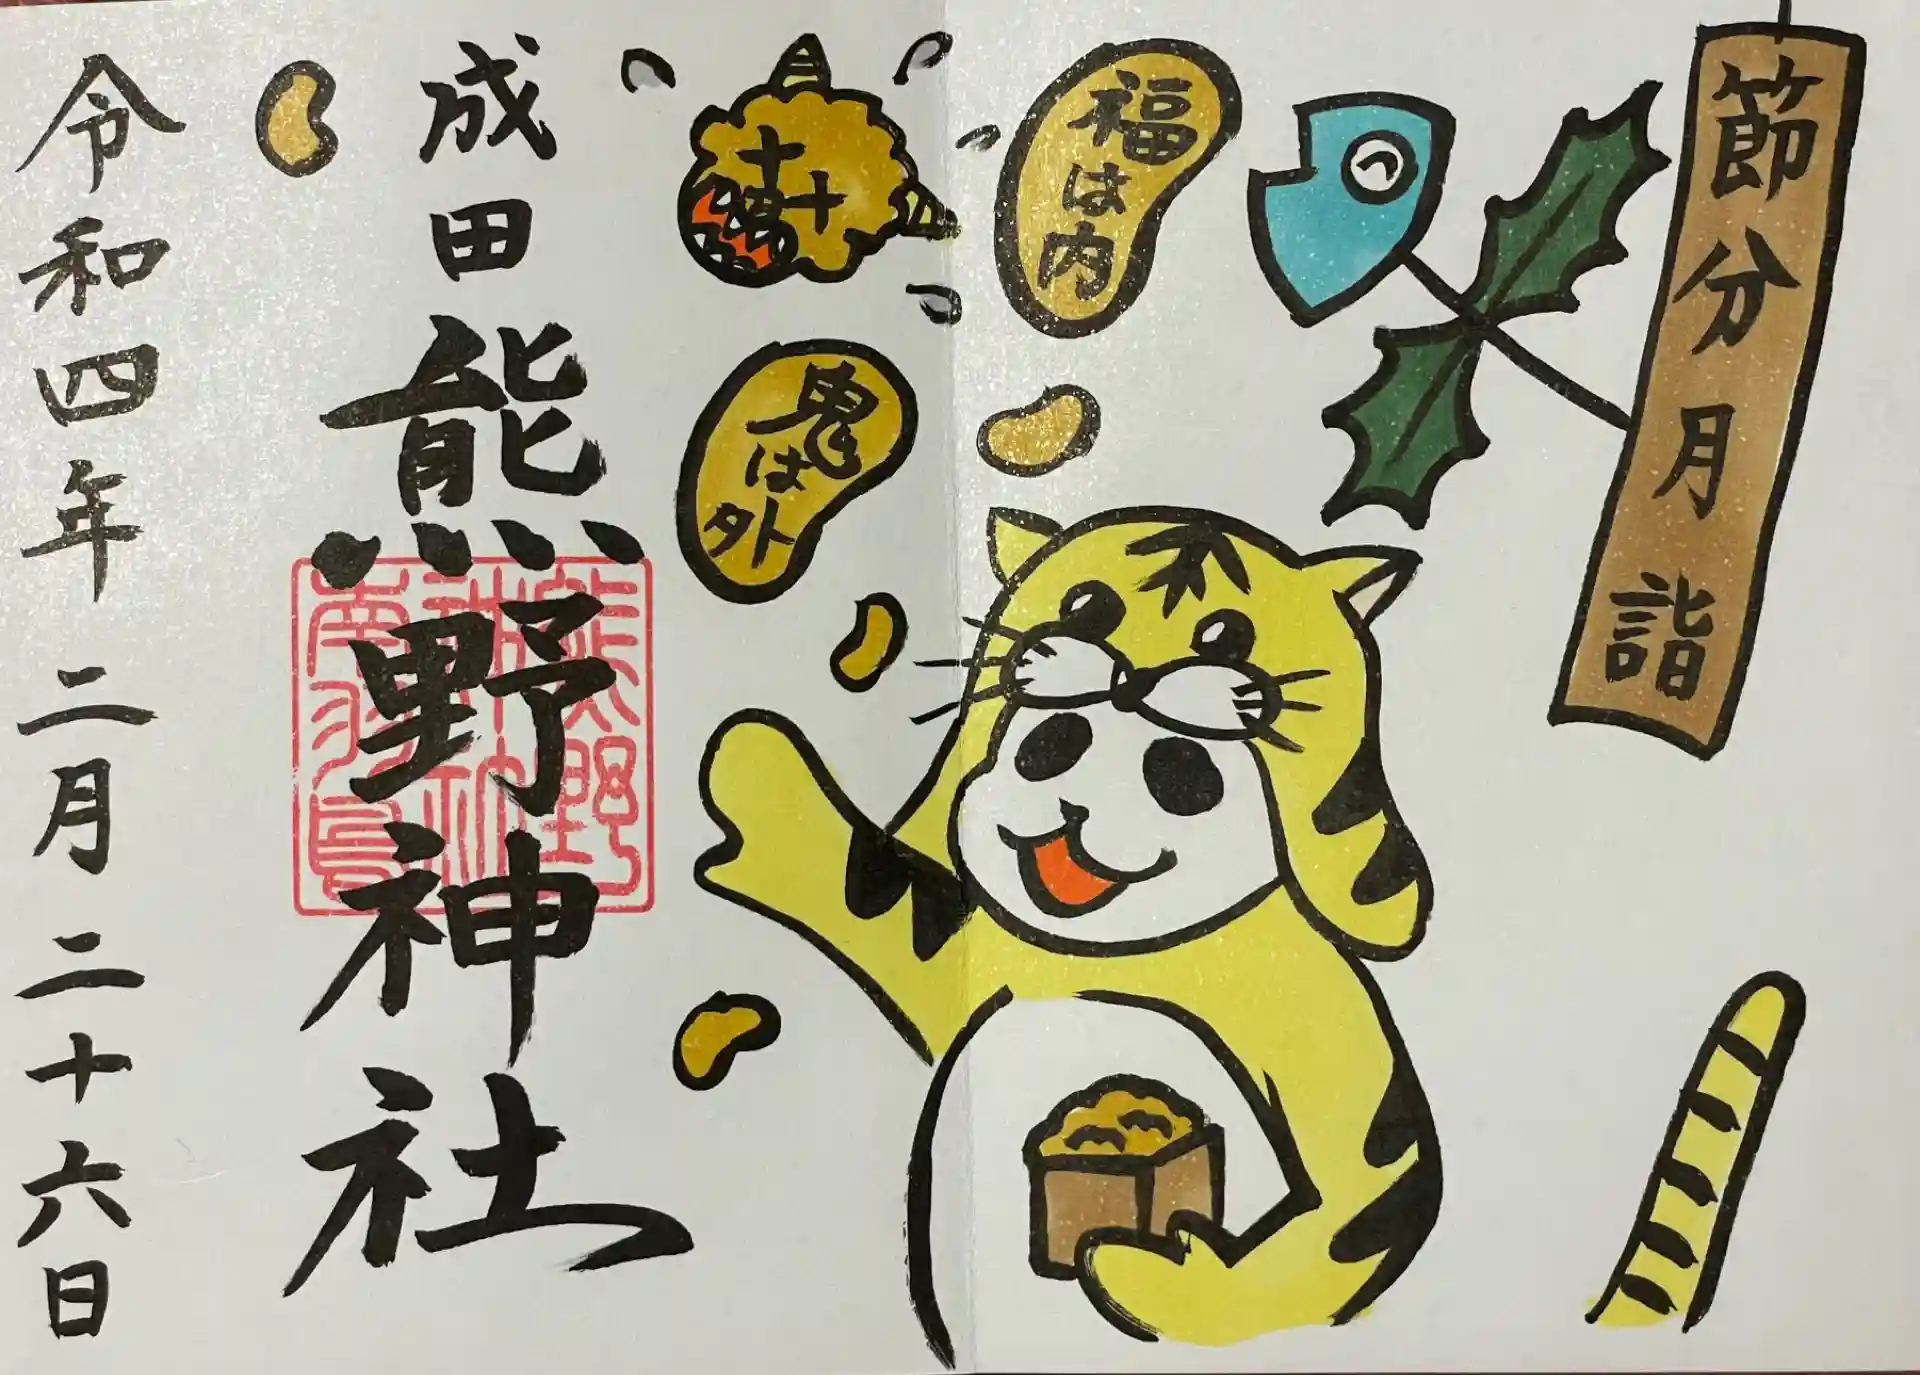 節分月詣
福は内
鬼は外
成田
熊野神社
令和四年二月二十六日